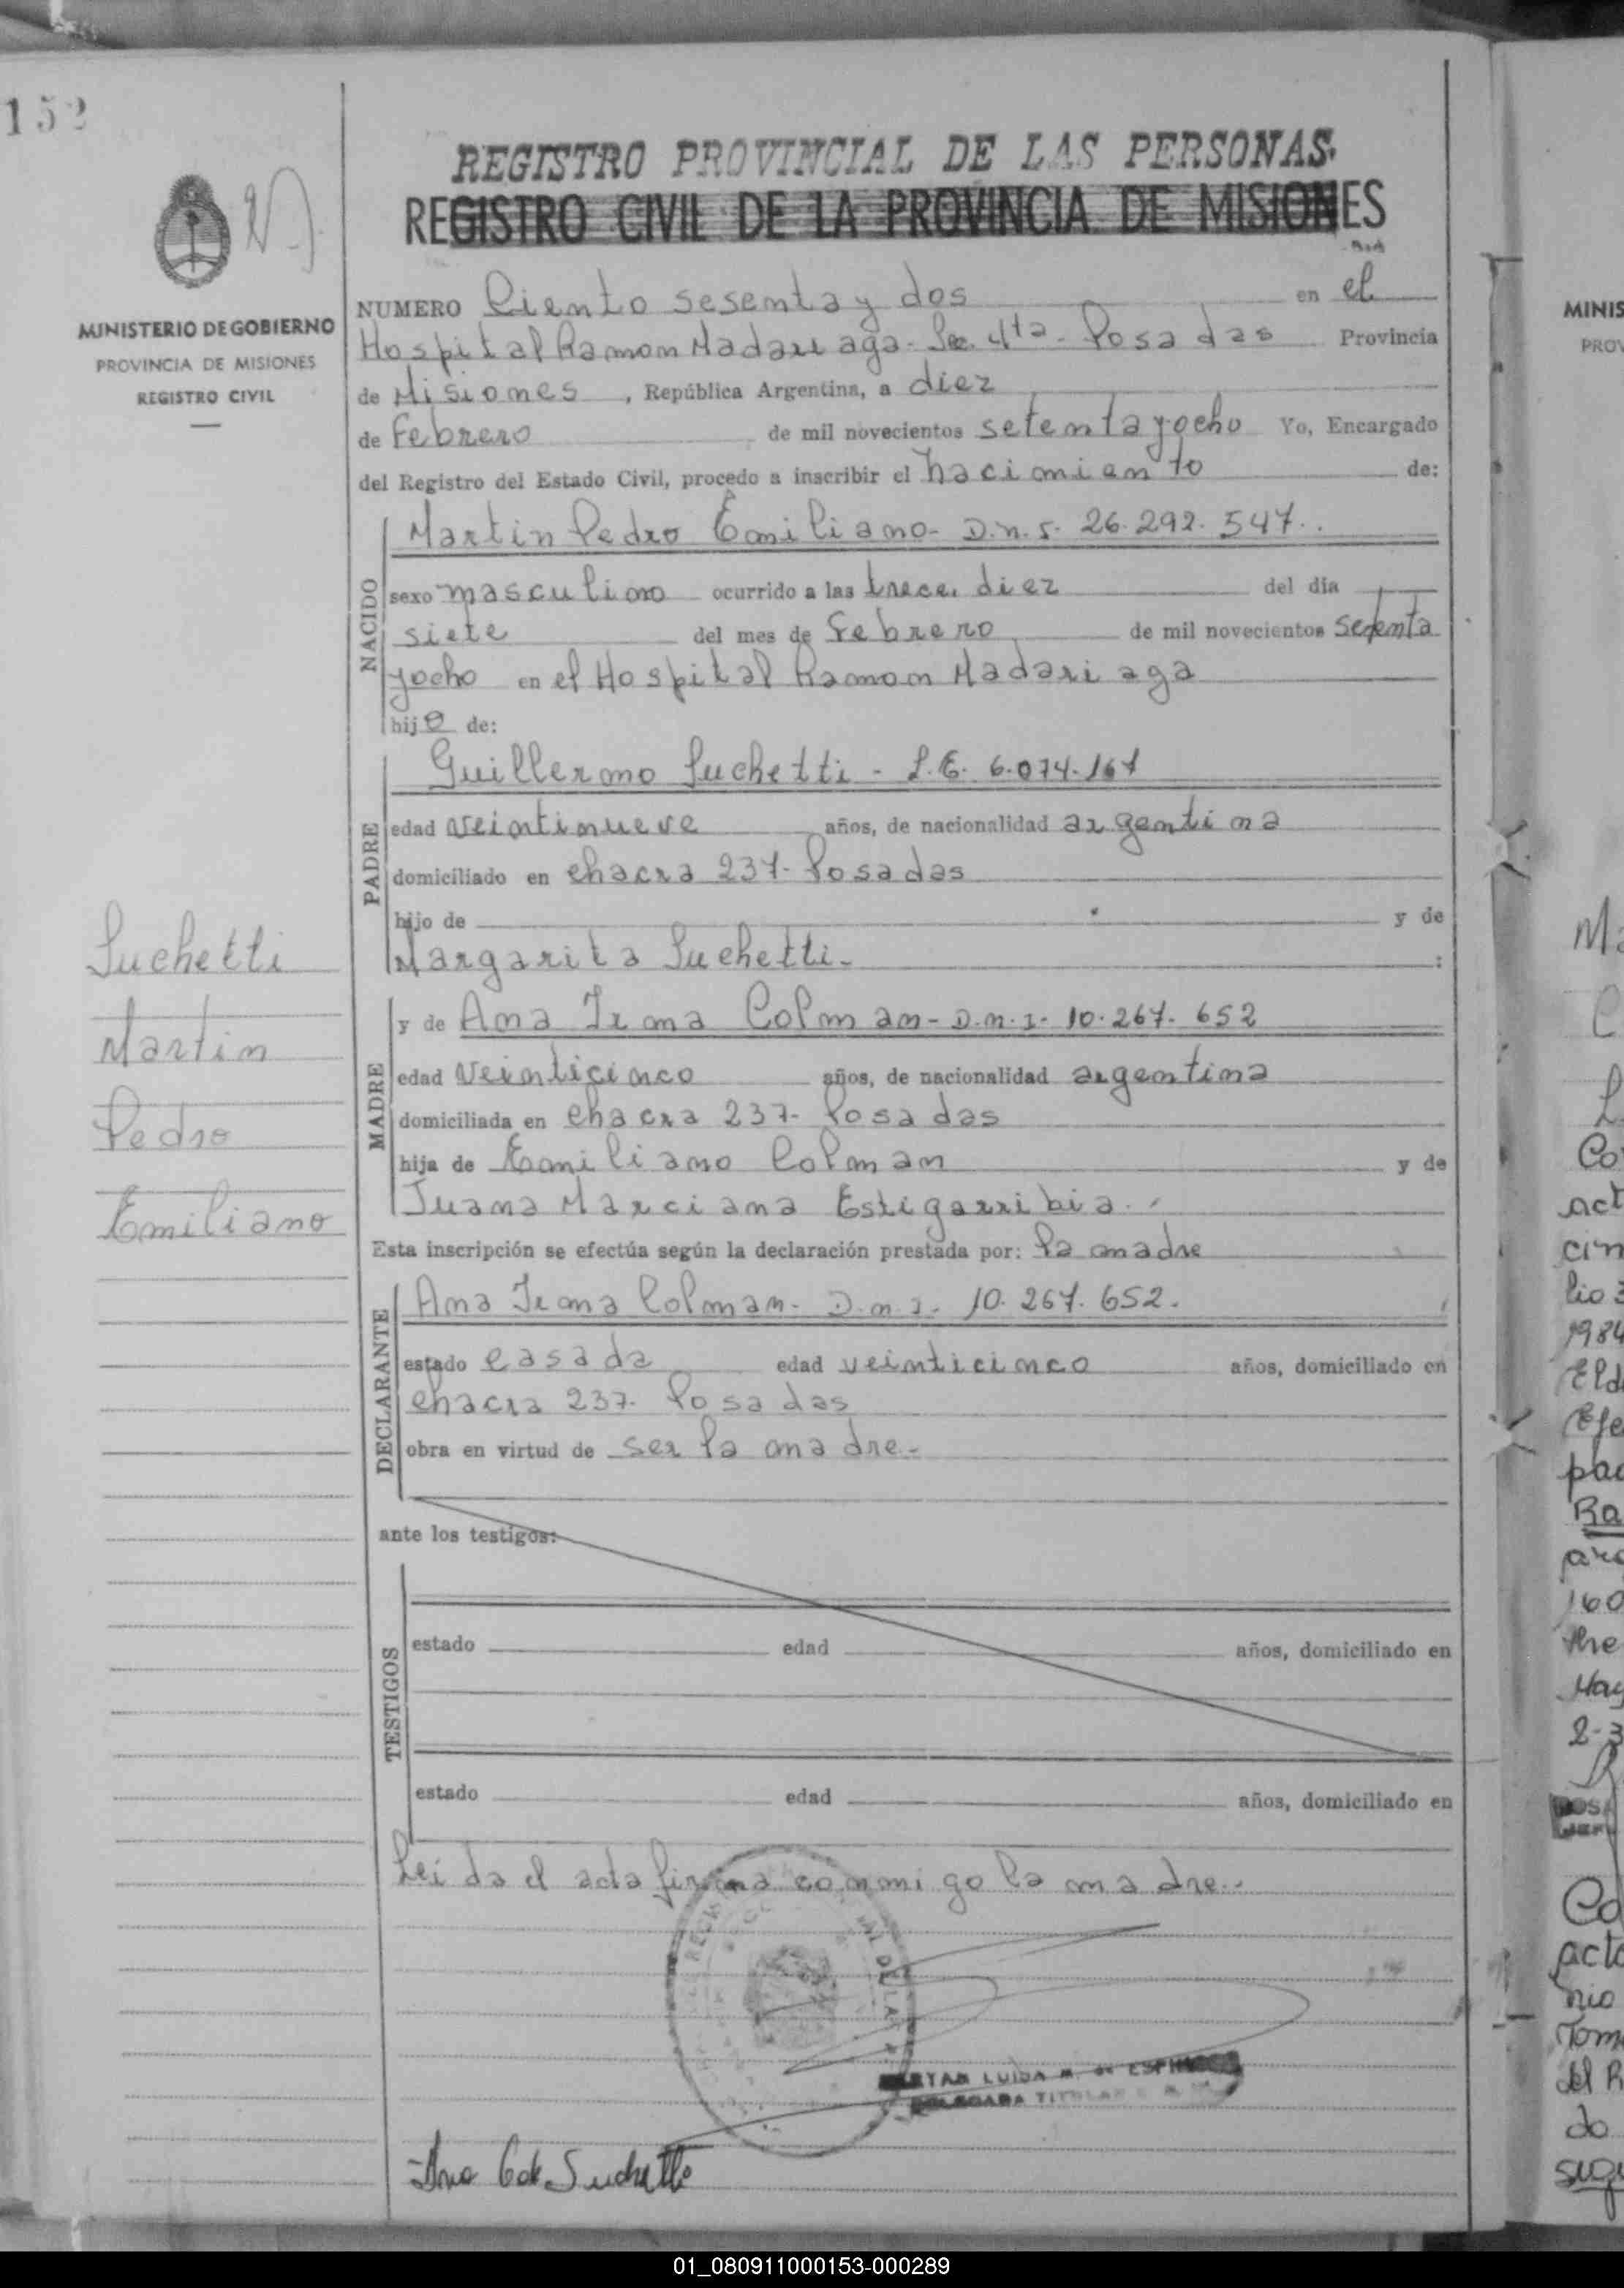 152
REGISTRO PROVINCIAL DE LAS PERSONAS.
REGISTRO CIVIL DE LA PROVINCIA DE MISIONES
MINISTERIO DE GOBIERNO
PROVINCIA DE MISIONES
REGISTRO CIVIL
NUMERO Ciento sesenta y dos en el
Hospital Ramon Madariaga - Sec. 4ta - Posadas Provincia
de Misiones, República Argentina, a diez
de Febrero de mil novecientos setenta y ocho Yo, Encargado
del Registro del Estado Civil, procedo a inscribir el nacimiento de:
NACIDO
Martin Pedro Emiliano - D.n.I. 26.292.547..
sexo masculino ocurrido a las trece, diez del día
siete del mes de Febrero de mil novecientos setenta
y ocho en el Hospital Ramon Madariaga
hijo de:
PADRE
Guillermo Suchetti - L.E. 6.074.167
edad veintinueve años, de nacionalidad argentina
domiciliado en chacra 237 - Posadas
hijo de y de
Margarita Suchetti - :
MADRE
y de Ana Irma Colman - D.n.I - 10.267.652
edad veinticinco años, de nacionalidad argentina
domiciliada en chacra 237 - Posadas
hija de Emiliano Colman y de
Juana Marciana Estigarribia.
Esta inscripción se efectúa según la declaración prestada por: la madre
DECLARANTE
Ana Irma Colman - D.n.I. 10.267.652.
estado casada edad veinticinco años, domiciliado en
chacra 237. Posadas
obra en virtud de ser la madre -
ante los testigos:
TESTIGOS
estado edad años, domiciliado en
estado edad años, domiciliado en
Leida el acta firma conmigo la madre..
LUISA M. de
DELEGADA TITULAR
Suchetti
Martin
Pedro
Emiliano
MINIS
PROV
Ma
C
L
Co
act
cin
lio 3
1984
Eld
Efe
pad
Ra
160
May
2-3
Ca
acto
nio
Tom
del R
do
01_080911000153-000289